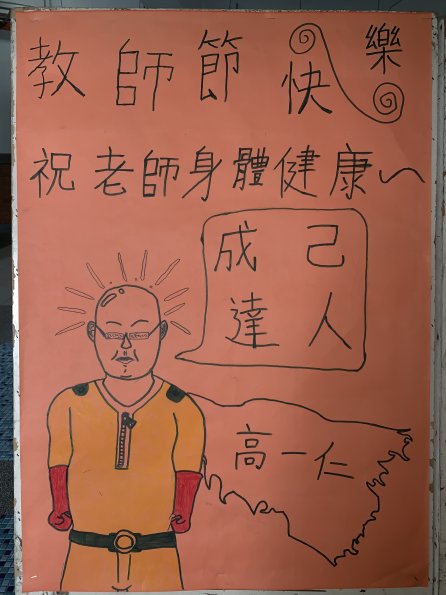 教師節快樂
祝老師身體健康～
成己
達人
高一仁